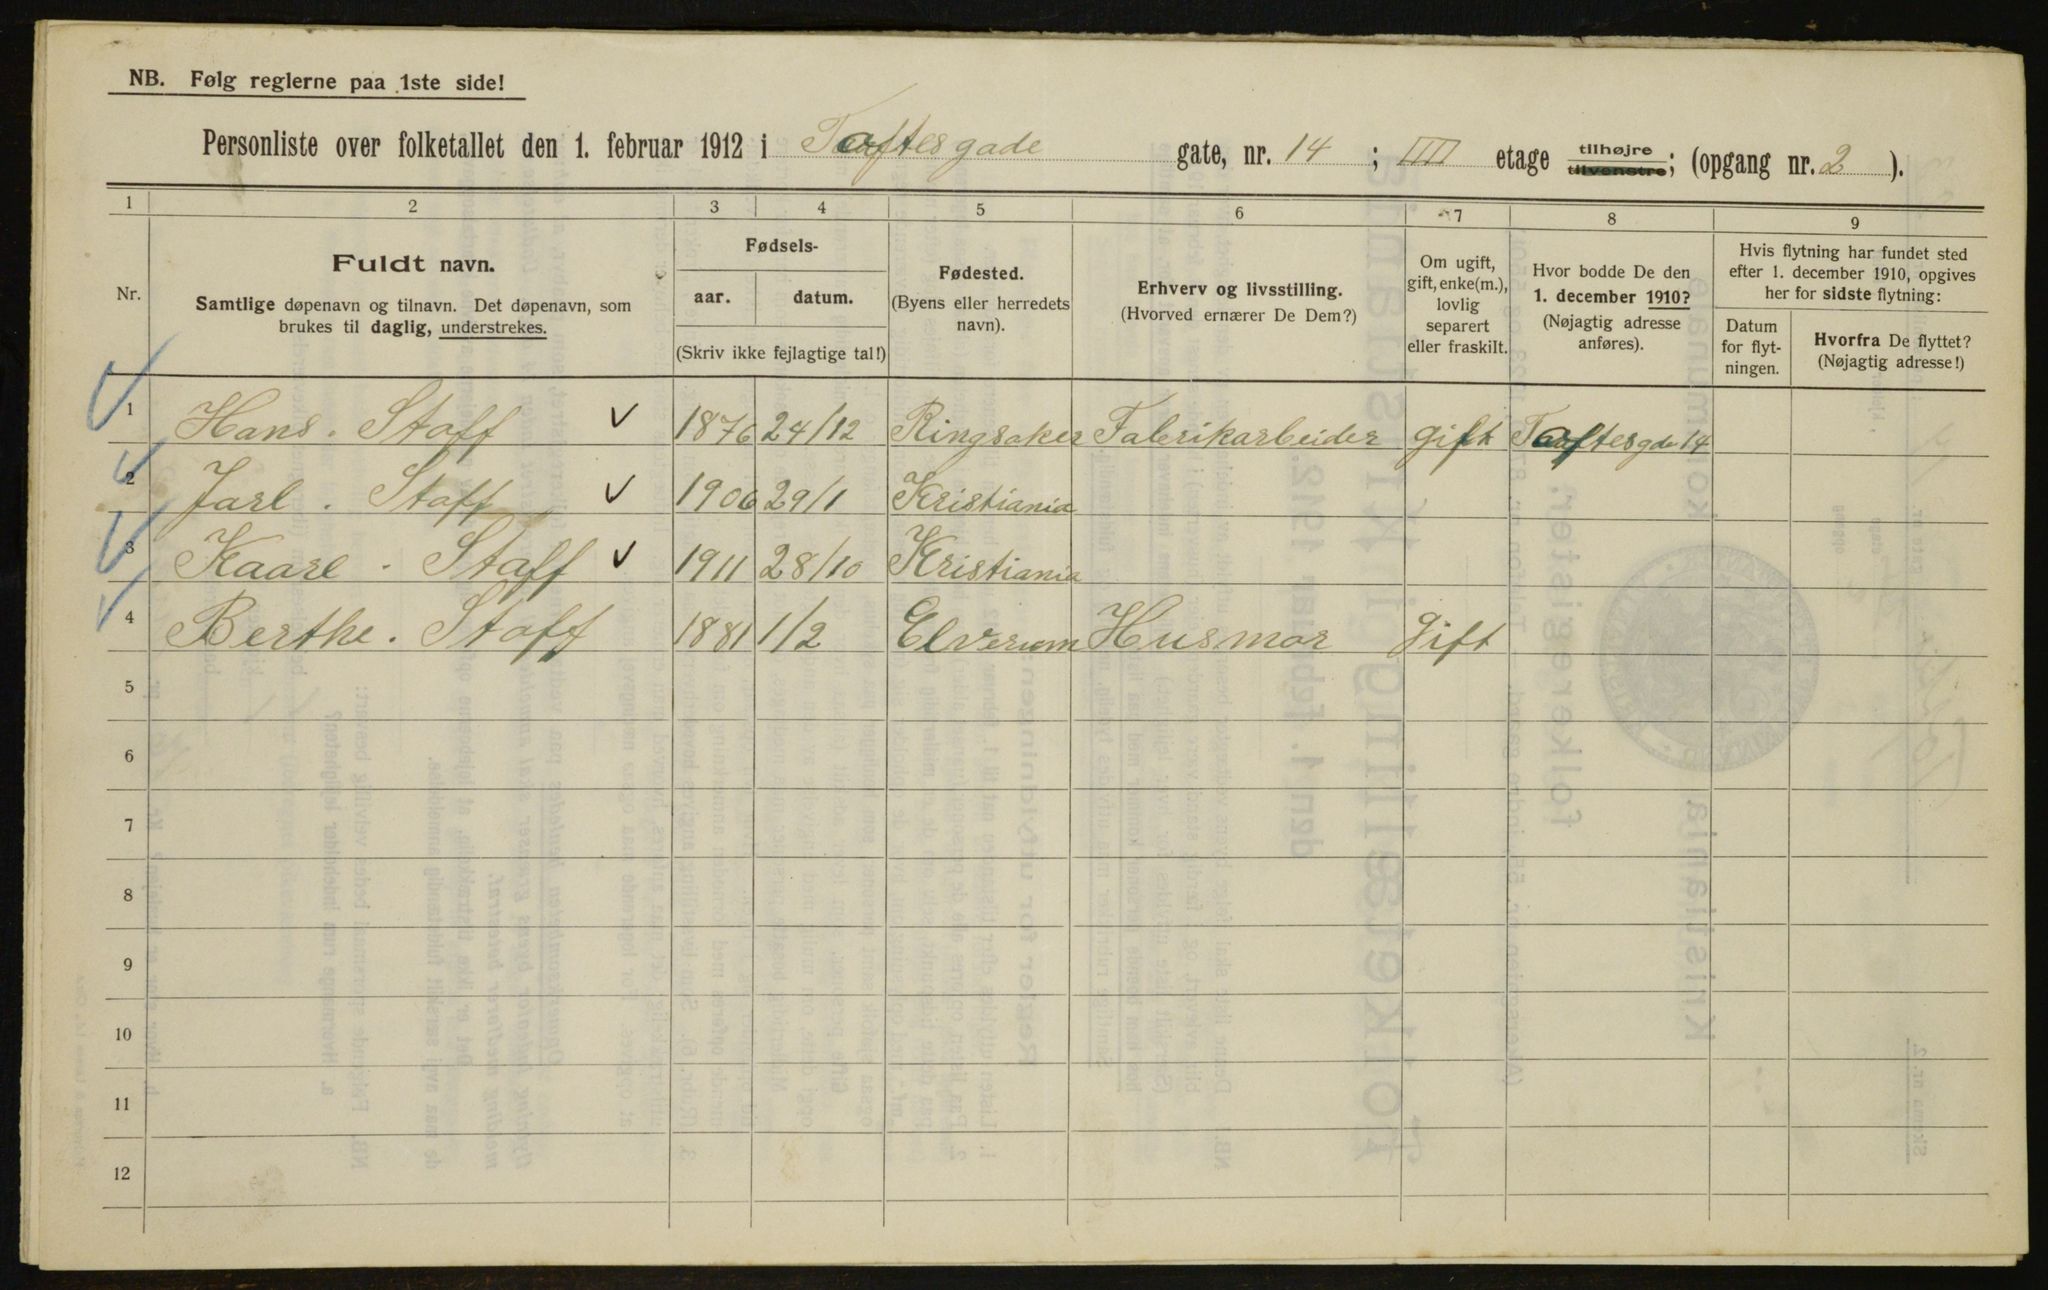 NB. Følg reglerne paa 1ste side!
Personliste over folketallet den 1. februar 1912 i Toftesgade gate, nr. 14 ; IIII etage tilhøjre tilvenstre; (opgang nr. 2 ).
1 2 3 4 5 6 7 8 9
Nr.
Fuldt navn.
Samtlige døpenavn og tilnavn. Det døpenavn, som
brukes til daglig, understrekes.
Fødsels-
aar. datum.
(Skriv ikke fejlagtige tal!)
Fødested.
(Byens eller herredets
navn).
Erhverv og livsstilling.
(Hvorved ernærer De Dem?)
Om ugift,
gift, enke(m.),
lovlig
separert
eller fraskilt.
Hvor bodde De den
1. december 1910?
(Nøjagtig adresse
anføres).
Hvis flytning har fundet sted
efter 1. december 1910, opgives
her for sidste flytning:
Datum
for flyt-
ningen.
Hvorfra De flyttet?
(Nøjagtig adresse!)
1 Hans. Staff 1876 24/12 Ringsaker Fabrikarbeider gift Toftesgde 14
2 Jarl. Staff 1906 29/1 Kristiania
3 Kaare. Staff 1911 28/10 Kristiania
4 Berthe. Staff 1881 1/2 Elverum Husmor Gift
5
6
7
8
9
10
11
12